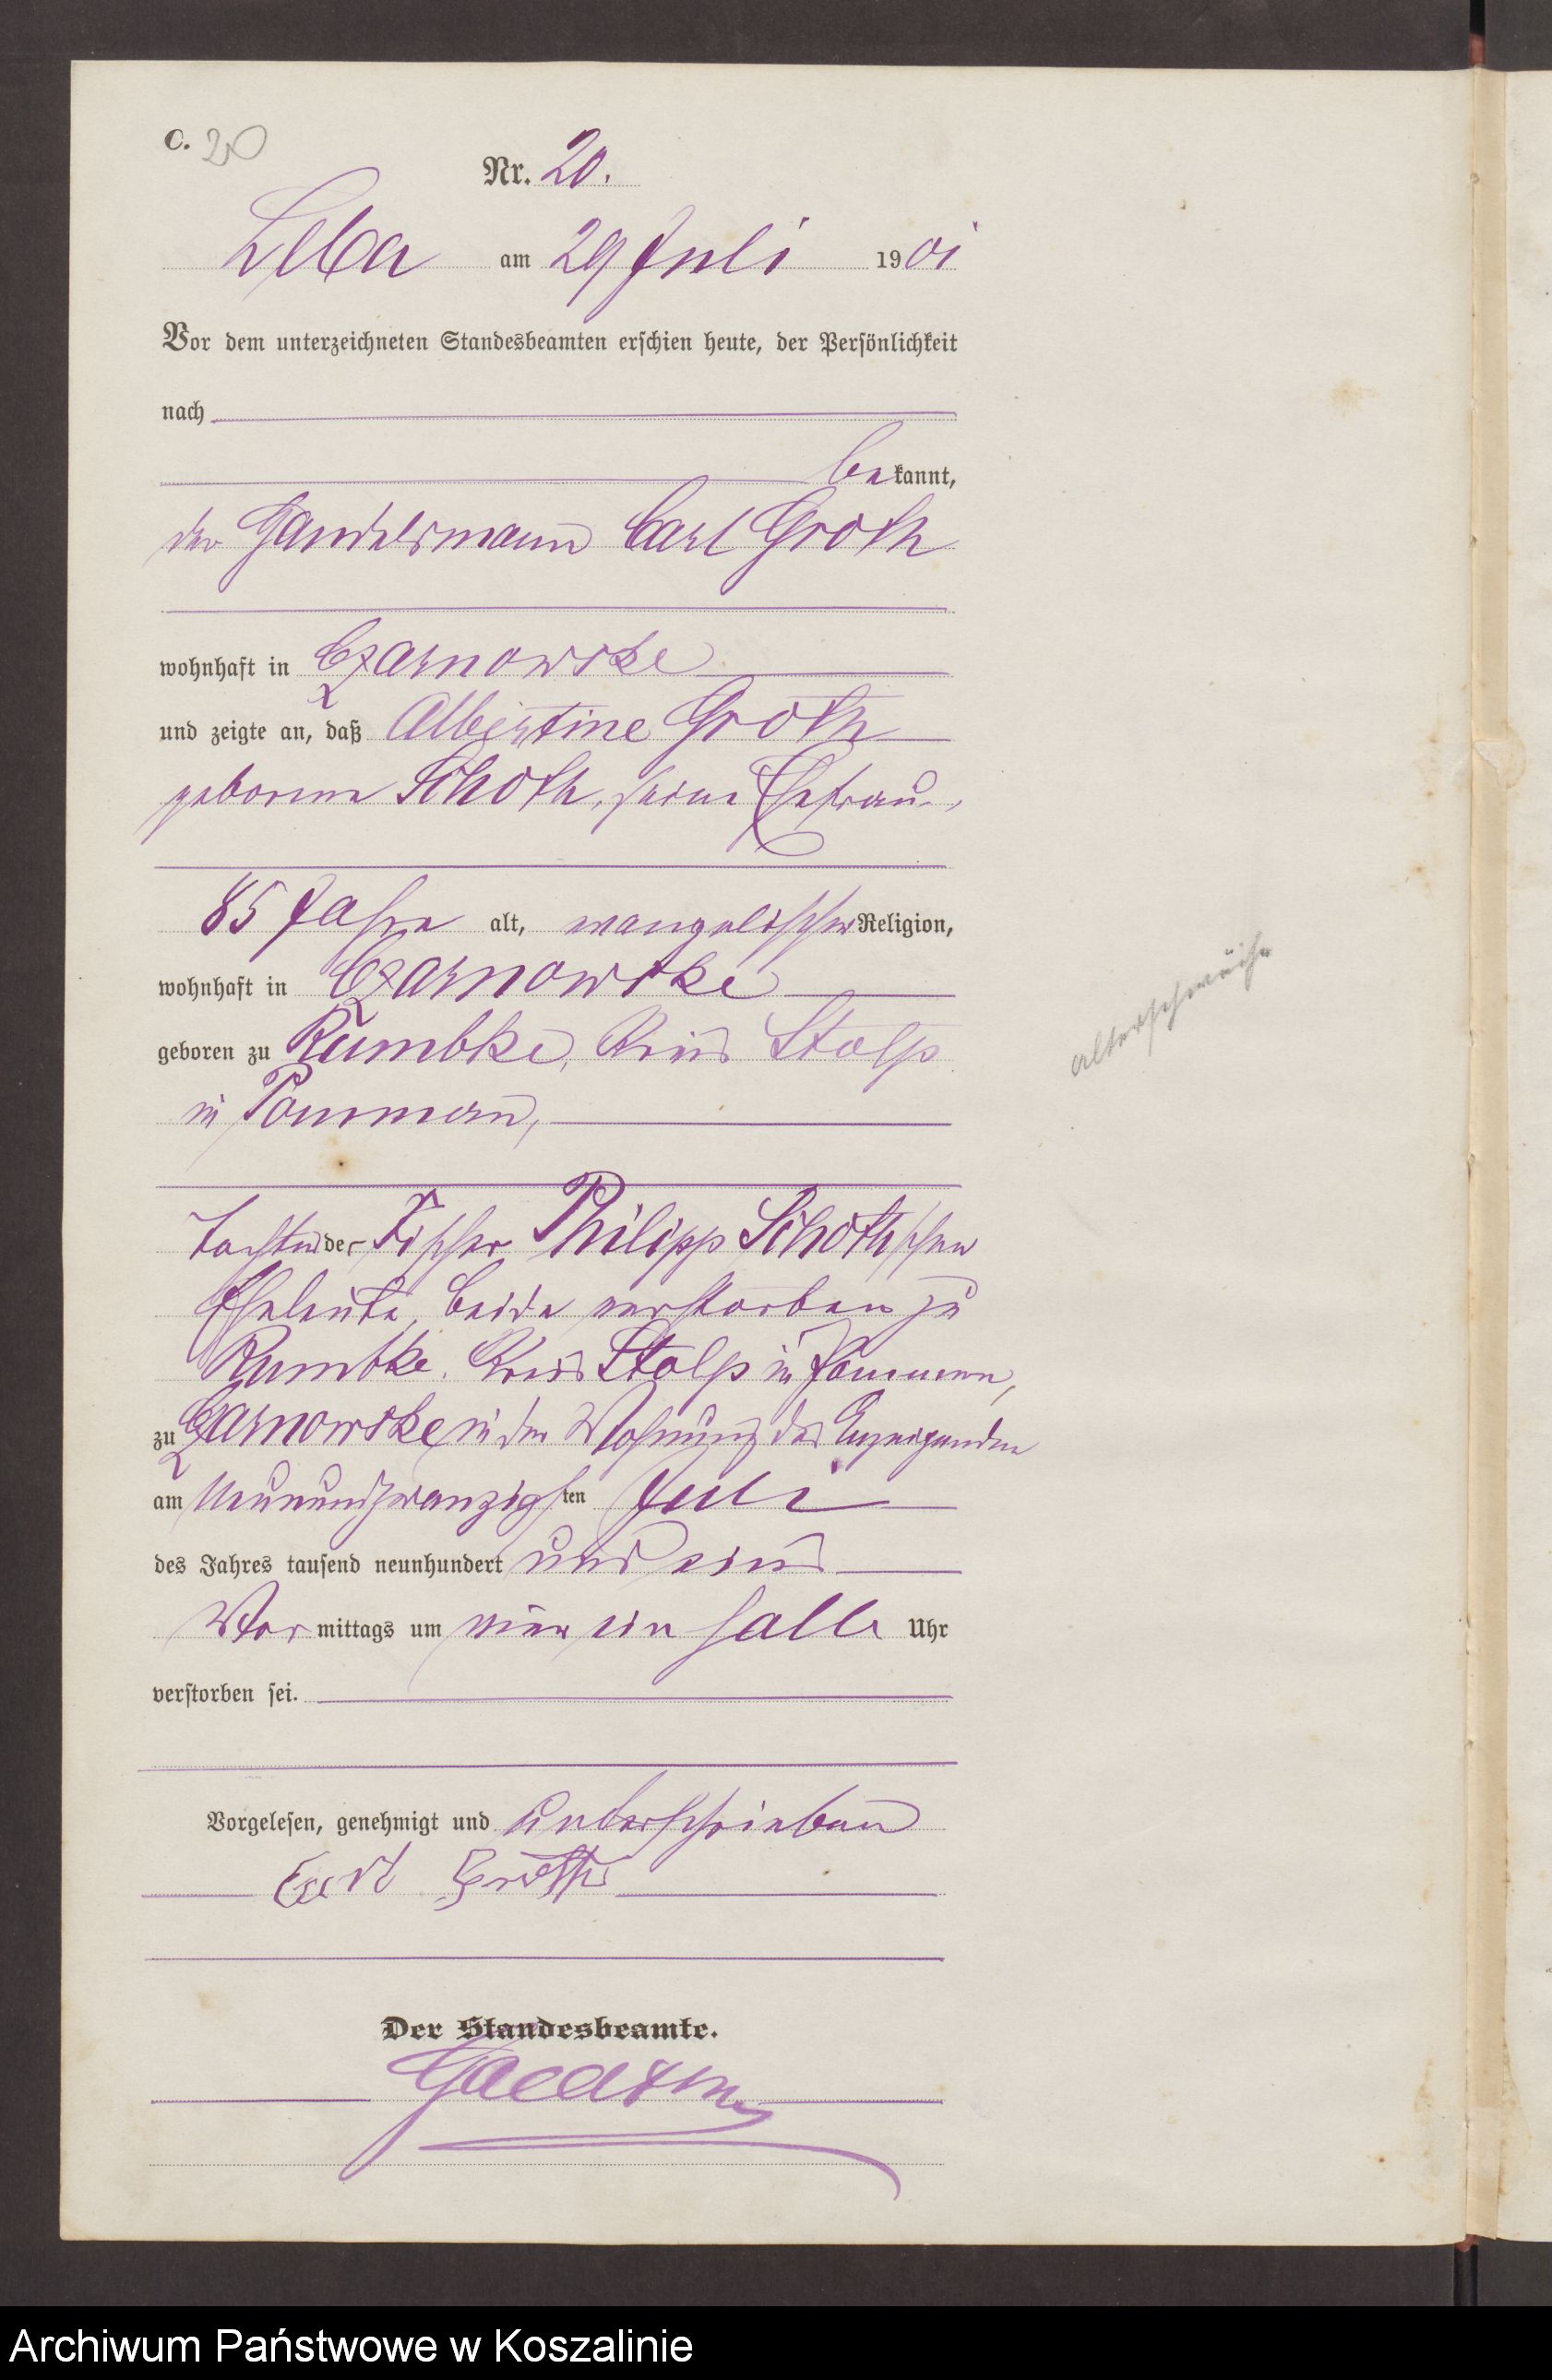 C. 20
Nr. 20.
Leba am 29 Juli 1901
Vor dem unterzeichneten Standesbeamten erschien heute, der Persönlichkeit
nach
bekannt,
der Handelsmann Carl Groth
wohnhaft in Czarnowske
und zeigte an, daß Albertine Groth
geborene Schoth, seine Ehefrau,
85 Jahre alt, evangelischer Religion,
wohnhaft in Czarnowske
geboren zu Rumbke, Kreis Stolp
in Pommern,
Tochter der Fischer Philipp Schothschen
Eheleute, beide verstorben zu
Rumbke, Kreis Stolp in Pommern,
zu Czarnowske, in der Wohnung des Anzeigenden
am Neunundzwanzigsten Juli
des Jahres tausend neunhundert und eins
Vormittags um vier ein halb Uhr
verstorben sei.
Vorgelesen, genehmigt und unterschrieben
Carl Groth
Der Standesbeamte.
altersschwäche
Archiwum Państwowe w Koszalinie